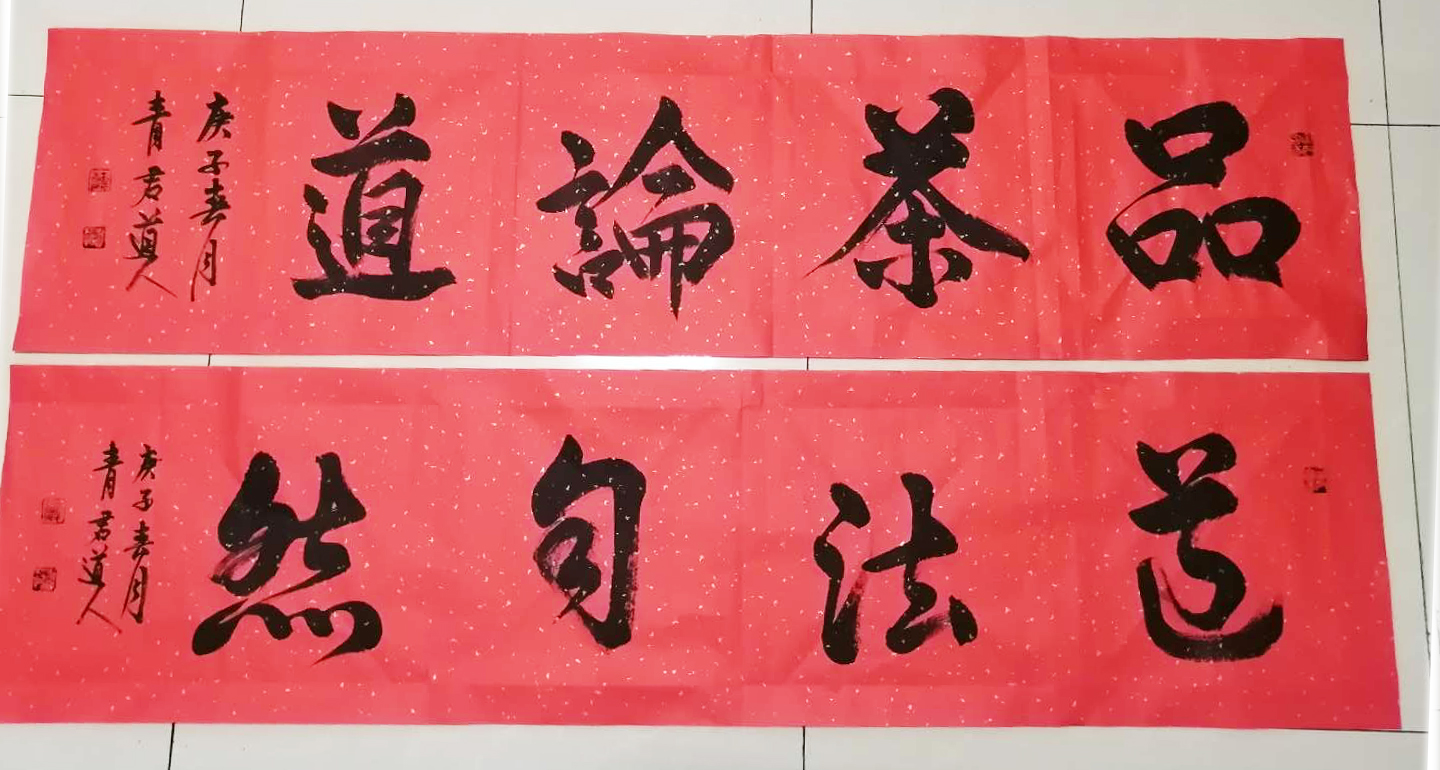 品茶論道
庚子春月
青君道人
道法自然
庚子春月
青君道人